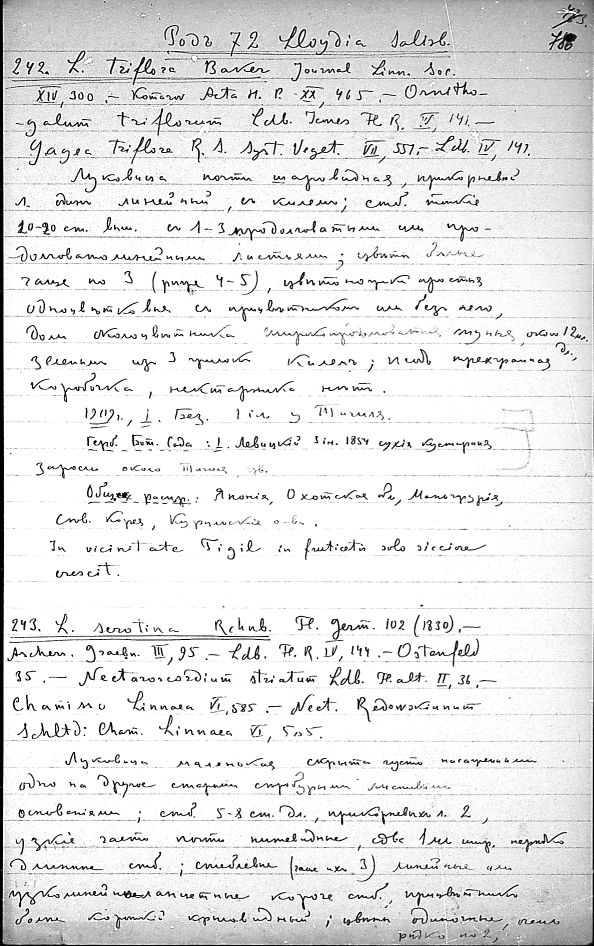 786
Родъ 72 Lloydia Salisb.
242. L. triflora Baker Journal Linn. Soc.
XIV, 300. — Комаров Acta H. P. XX, 465. — Ornitho-
-galum triflorum Ldb. Fl. R. IV, 141. —
Gagea triflora R. S. Syst. Veget. VII, 551. — Ldb. IV, 141.
Луковица почти шаровидная, прикорневой
л. один линейный, съ килемъ; стб. тонкіе
10-20 ст. выш. съ 1-3 продолговатыми или про-
-долговатолинейными листьями; цвѣты белые
чаще по 3 (рѣже 4-5), цвѣтоножки простыя
одноцвѣтковыя съ прицвѣтником или без него,
доли околоцвѣтника тупыя, около 12 мм.
дл.,
зеленым из 3 килемъ; плодъ трехгранная
коробочка, нектарника нѣтъ.
1909 г., I. Без. 1 iюл у Тигиля.
Герб. Бот. Сада: I. Левицкій 3 iн. 1854 сухія кустарныя
заросли около Тигиля, цв.
Общее распр.: Японія, Охотская обл., Манджурія,
Сѣв. Корея, Курильскіе о-ва.
In vicinitate Tigil in fruticetis solo sicciore
crescit.
243. L. serotina Rchnb. Fl. germ. 102 (1830). —
Aschers. Graebn. III, 95. — Ldb. Fl. R. IV, 144. — Ostenfeld
35. — Nectaroscordium striatum Ldb. Fl. alt. II, 36. —
Chamisso Linnaea VI, 585. — Nect. Redowskianum
Schltd: Cham. Linnaea VI, 585.
Луковица маленькая скрыта густо насаженными
одно на другое старыми бурыми листовыми
основаніями; стб. 5-8 ст. дл., прикорневых л. 2,
узкіе часто почти нитевидные, едва 1 мм шир. нерѣдко
длиннѣе стб.; стеблевые (чаще ихъ 3) линейные или
узколинейноланцетные короче стб., прицвѣтникъ
болѣе короткій; цвѣты одиночные, очень
рѣдко по 2,